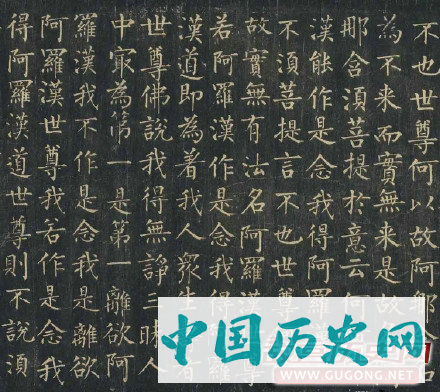 不也世尊何以故阿那含名
為不来而實無来是故
那含須菩提於意云何
漢能作是念我得阿羅
不須菩提言不也世尊
故實無有法名阿羅漢
若阿羅漢作是念我得
漢道即為著我人衆生
世尊佛說我得無諍三昧人
中冣為第一是第一離欲阿
羅漢我不作是念我是離欲
阿羅漢世尊我若作是念我
得阿羅漢道世尊則不說須
中国历史网
WWW.GUGONG.NET